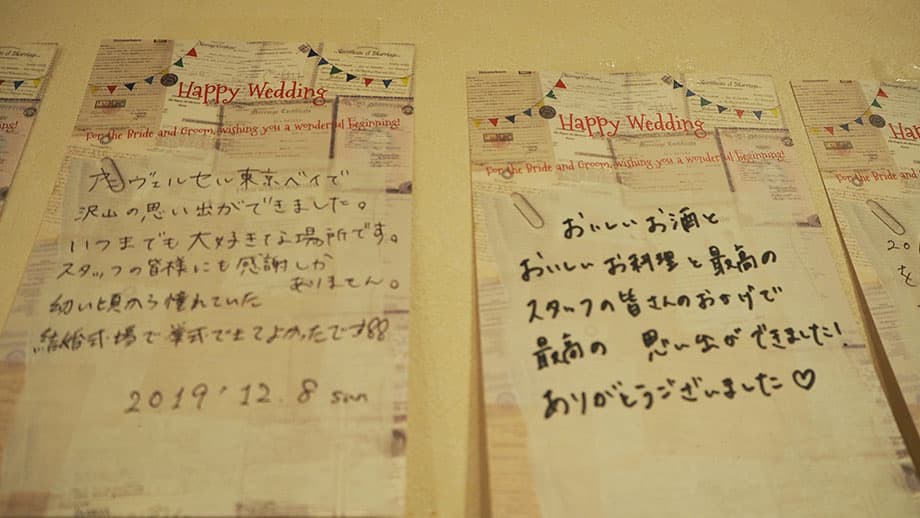 Happy Wedding
For the Bride and Groom, wishing you a wonderful beginning!
アヴェルセル東京ベイで
沢山の思い出ができました。
いつまでも大好きな場所です。
スタッフの皆様にも感謝しか
ありません。
幼い頃から憧れていた
結婚式場で挙式できてよかったです
2019'12.8 sun
Happy Wedding
For the Bride and Groom, wishing you a wonderful beginning!
おいしいお酒と
おいしいお料理と最高の
スタッフの皆さんのおかげで
最高の 思い出ができました!
ありがとうございました♡
Happy W
For the Bride and Groo
20
を